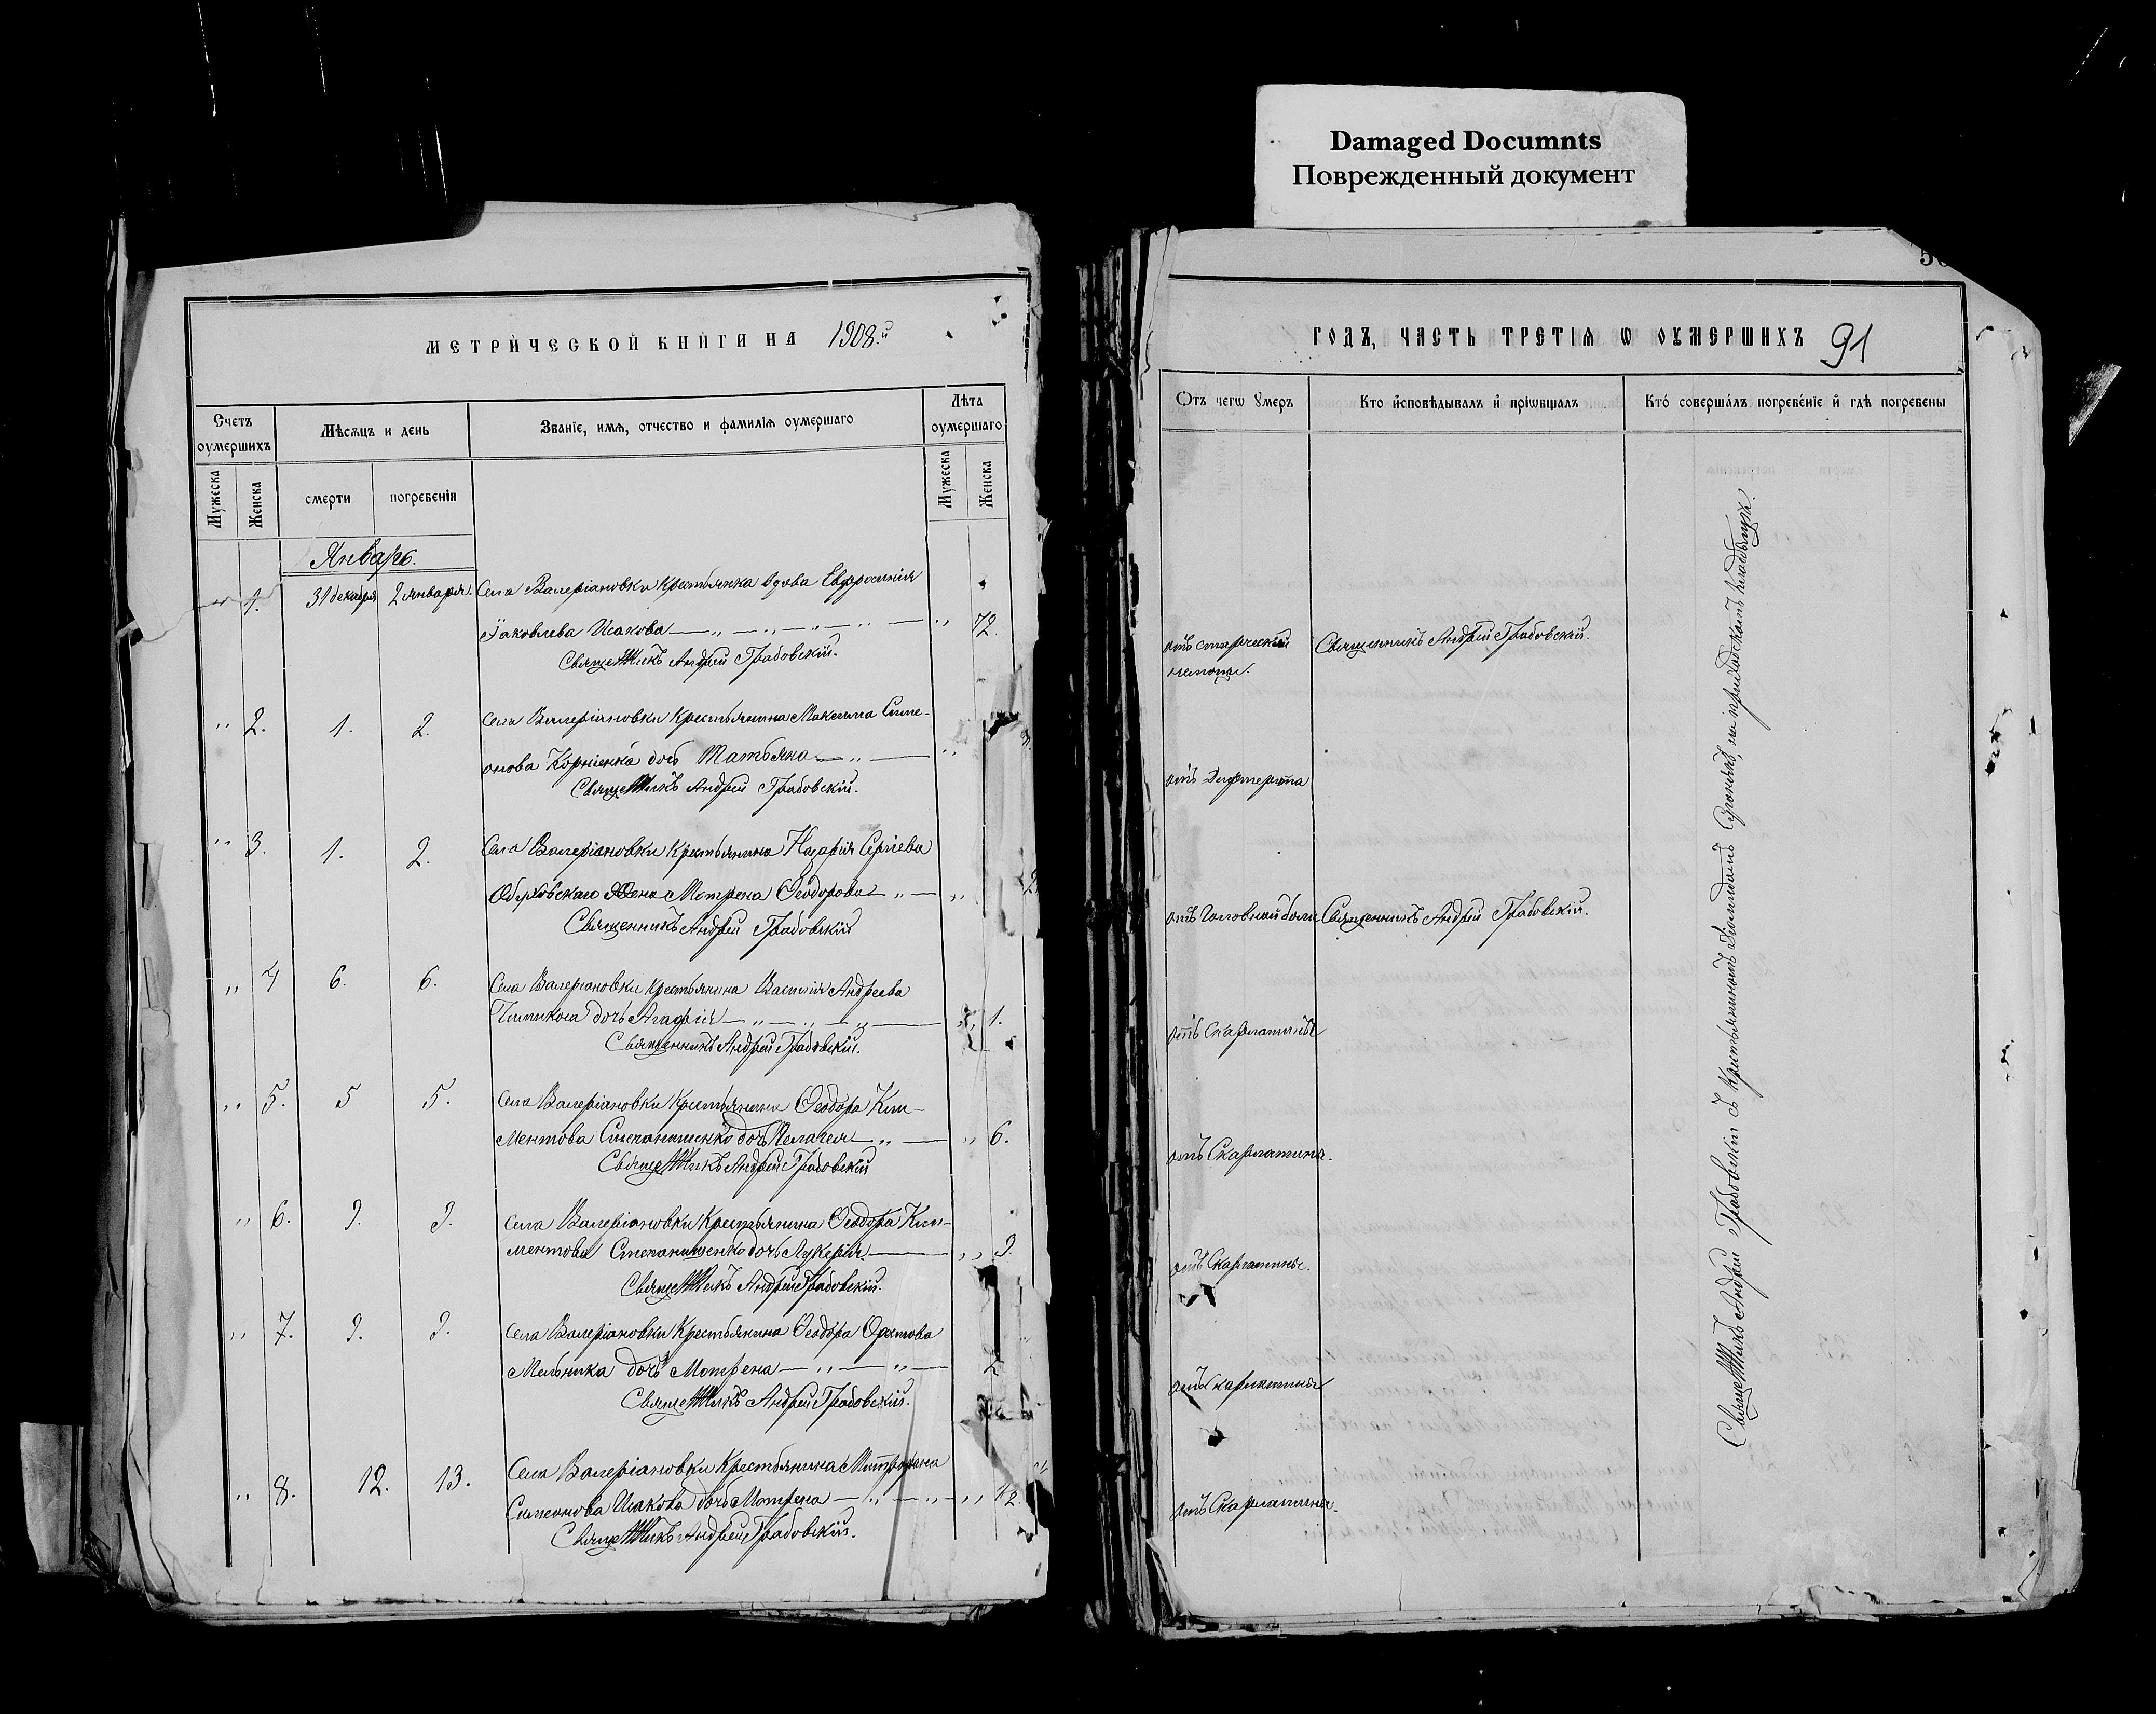 Damaged Documnts
Поврежденный документ
МЕТРИЧЕСКОЙ КНИГИ НА 1908.й
Счетъ оумершихъ
Мѣсяцъ и день
Званіе, имя, отчество и фамилія оумершаго
Лѣта оумершаго
Мужеска
Женска
смерти
погребенія
Мужеска
Женска
Январь.
„ 1. 31 декабря 2 января. Села Валеріановки крестьянка вдова Евфросинія
Іаковлева Исакова — „ — „ — „ — „ — „ 72.
Священникъ Андрей Грабовскій.
„ 2. 1. 2. Села Валеріановки крестьянина Максима Симе-
онова Корніенка дочь Татьяна — „ — „
Священникъ Андрей Грабовскій.
„ 3. 1. 2. Села Валеріановки крестьянина Назарія Сергіева
Обуховскаго жена Мотрена Ѳеодорова — „ — „
Священникъ Андрей Грабовскій
„ 4 6. 6. Села Валеріановки крестьянина Василія Андреева
дочь Агафія — „ — „ — „ — „ 1.
Священникъ Андрей Грабовскій.
„ 5. 5 5. Села Валеріановки крестьянина Ѳеодора Кли-
ментова Степаненко дочь Пелагея — „ — „ 6.
Священникъ Андрей Грабовскій
„ 6. 9. 9. Села Валеріановки крестьянина Ѳеодора Кли-
ментова дочь Лукерія — „ 9.
Священникъ Андрей Грабовскій.
„ 7. 9. 9. Села Валеріановки крестьянина Ѳеодора Орестова
Мельника дочь Мотрена — „ — „ — 2
Священникъ Андрей Грабовскій.
„ 8. 12. 13. Села Валеріановки крестьянина Митрофана
Симеонова Исакова дочь Мотрена — „ — „ — „
Священникъ Андрей Грабовскій.
ГОДЪ, ЧАСТЬ ТРЕТІЯ Ѡ ОУМЕРШИХЪ 91
Отъ чегѡ ꙋмеръ
Кто исповѣдывалъ и пріѡбщалъ
Кто совершалъ погребеніе и гдѣ погребены
отъ старческой
немощи.
Священникъ Андрей Грабовскій.
отъ Дифтерита
отъ головной боли Священникъ Андрей Грабовскій.
отъ Скарлатины
отъ Скарлатины.
отъ Скарлатины.
отъ скарлатины
отъ Скарлатины.
Священникъ Андрей Грабовскій съ крестьяниномъ на приходскомъ кладбищѣ.